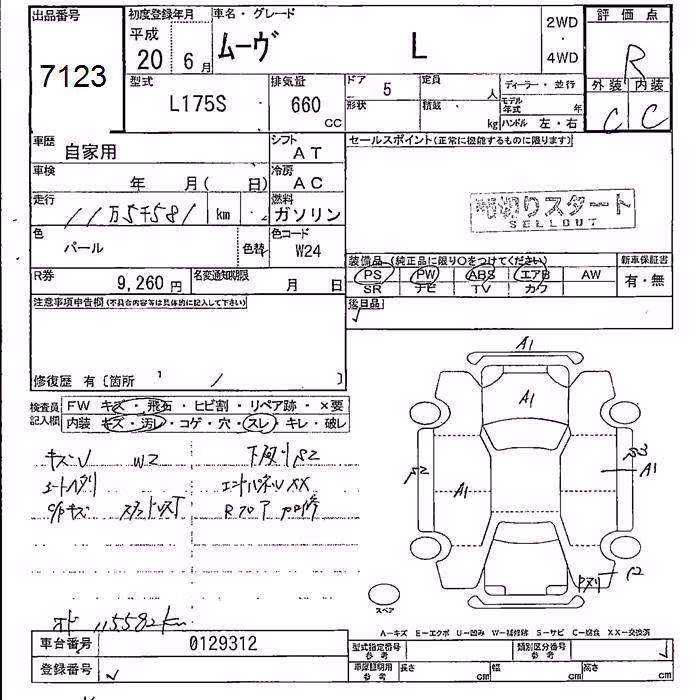 出品番号
7123
初度登録年月
平成
20 6月
車名・グレード
ムーヴ L
2WD
・
4WD
評価点
R
外装 内装
C C
型式
L175S
排気量
660
CC
ドア 5
形状
定員 人
積載 kg
ディーラー・並行
モデル年式 年
ハンドル 左・右
車歴
自家用
シフト
AT
セールスポイント(正常に機能するものに限ります)
車検
年 月( 日)
冷房
AC
走行
11万5千581 km
燃料
ガソリン
売切りスタート
SELLOUT
色
パール
色替
色コード
W24
装備品 (純正品に限り○をつけてください)
PS PW ABS エアB AW
SR ナビ TV カワ
新車保証書
有・無
R券
9,260円
名変通知期限
月 日
後日品
注意事項申告欄(不具合内容等は具体的に記入して下さい)
修復歴 有〔箇所 〕
検査員記入欄
FW キズ・飛石・ヒビ割・リペア跡・×要
内装 キズ・汚レ・コゲ・穴・スレ・キレ・破レ
キズU W2
シートヘタリ
エンドパネルXX
C/Pキズ
Rフロア
A1
A1
B2
A1
B3
A1
C2
スペア
115582km
A-キズ E-エクボ U-凹み W-補修跡 S-サビ C-腐食 XX-交換済
車台番号
0129312
型式指定番号
参考
類別区分番号
参考
登録番号
車庫証明用
参考
長さ cm
幅 cm
高さ cm